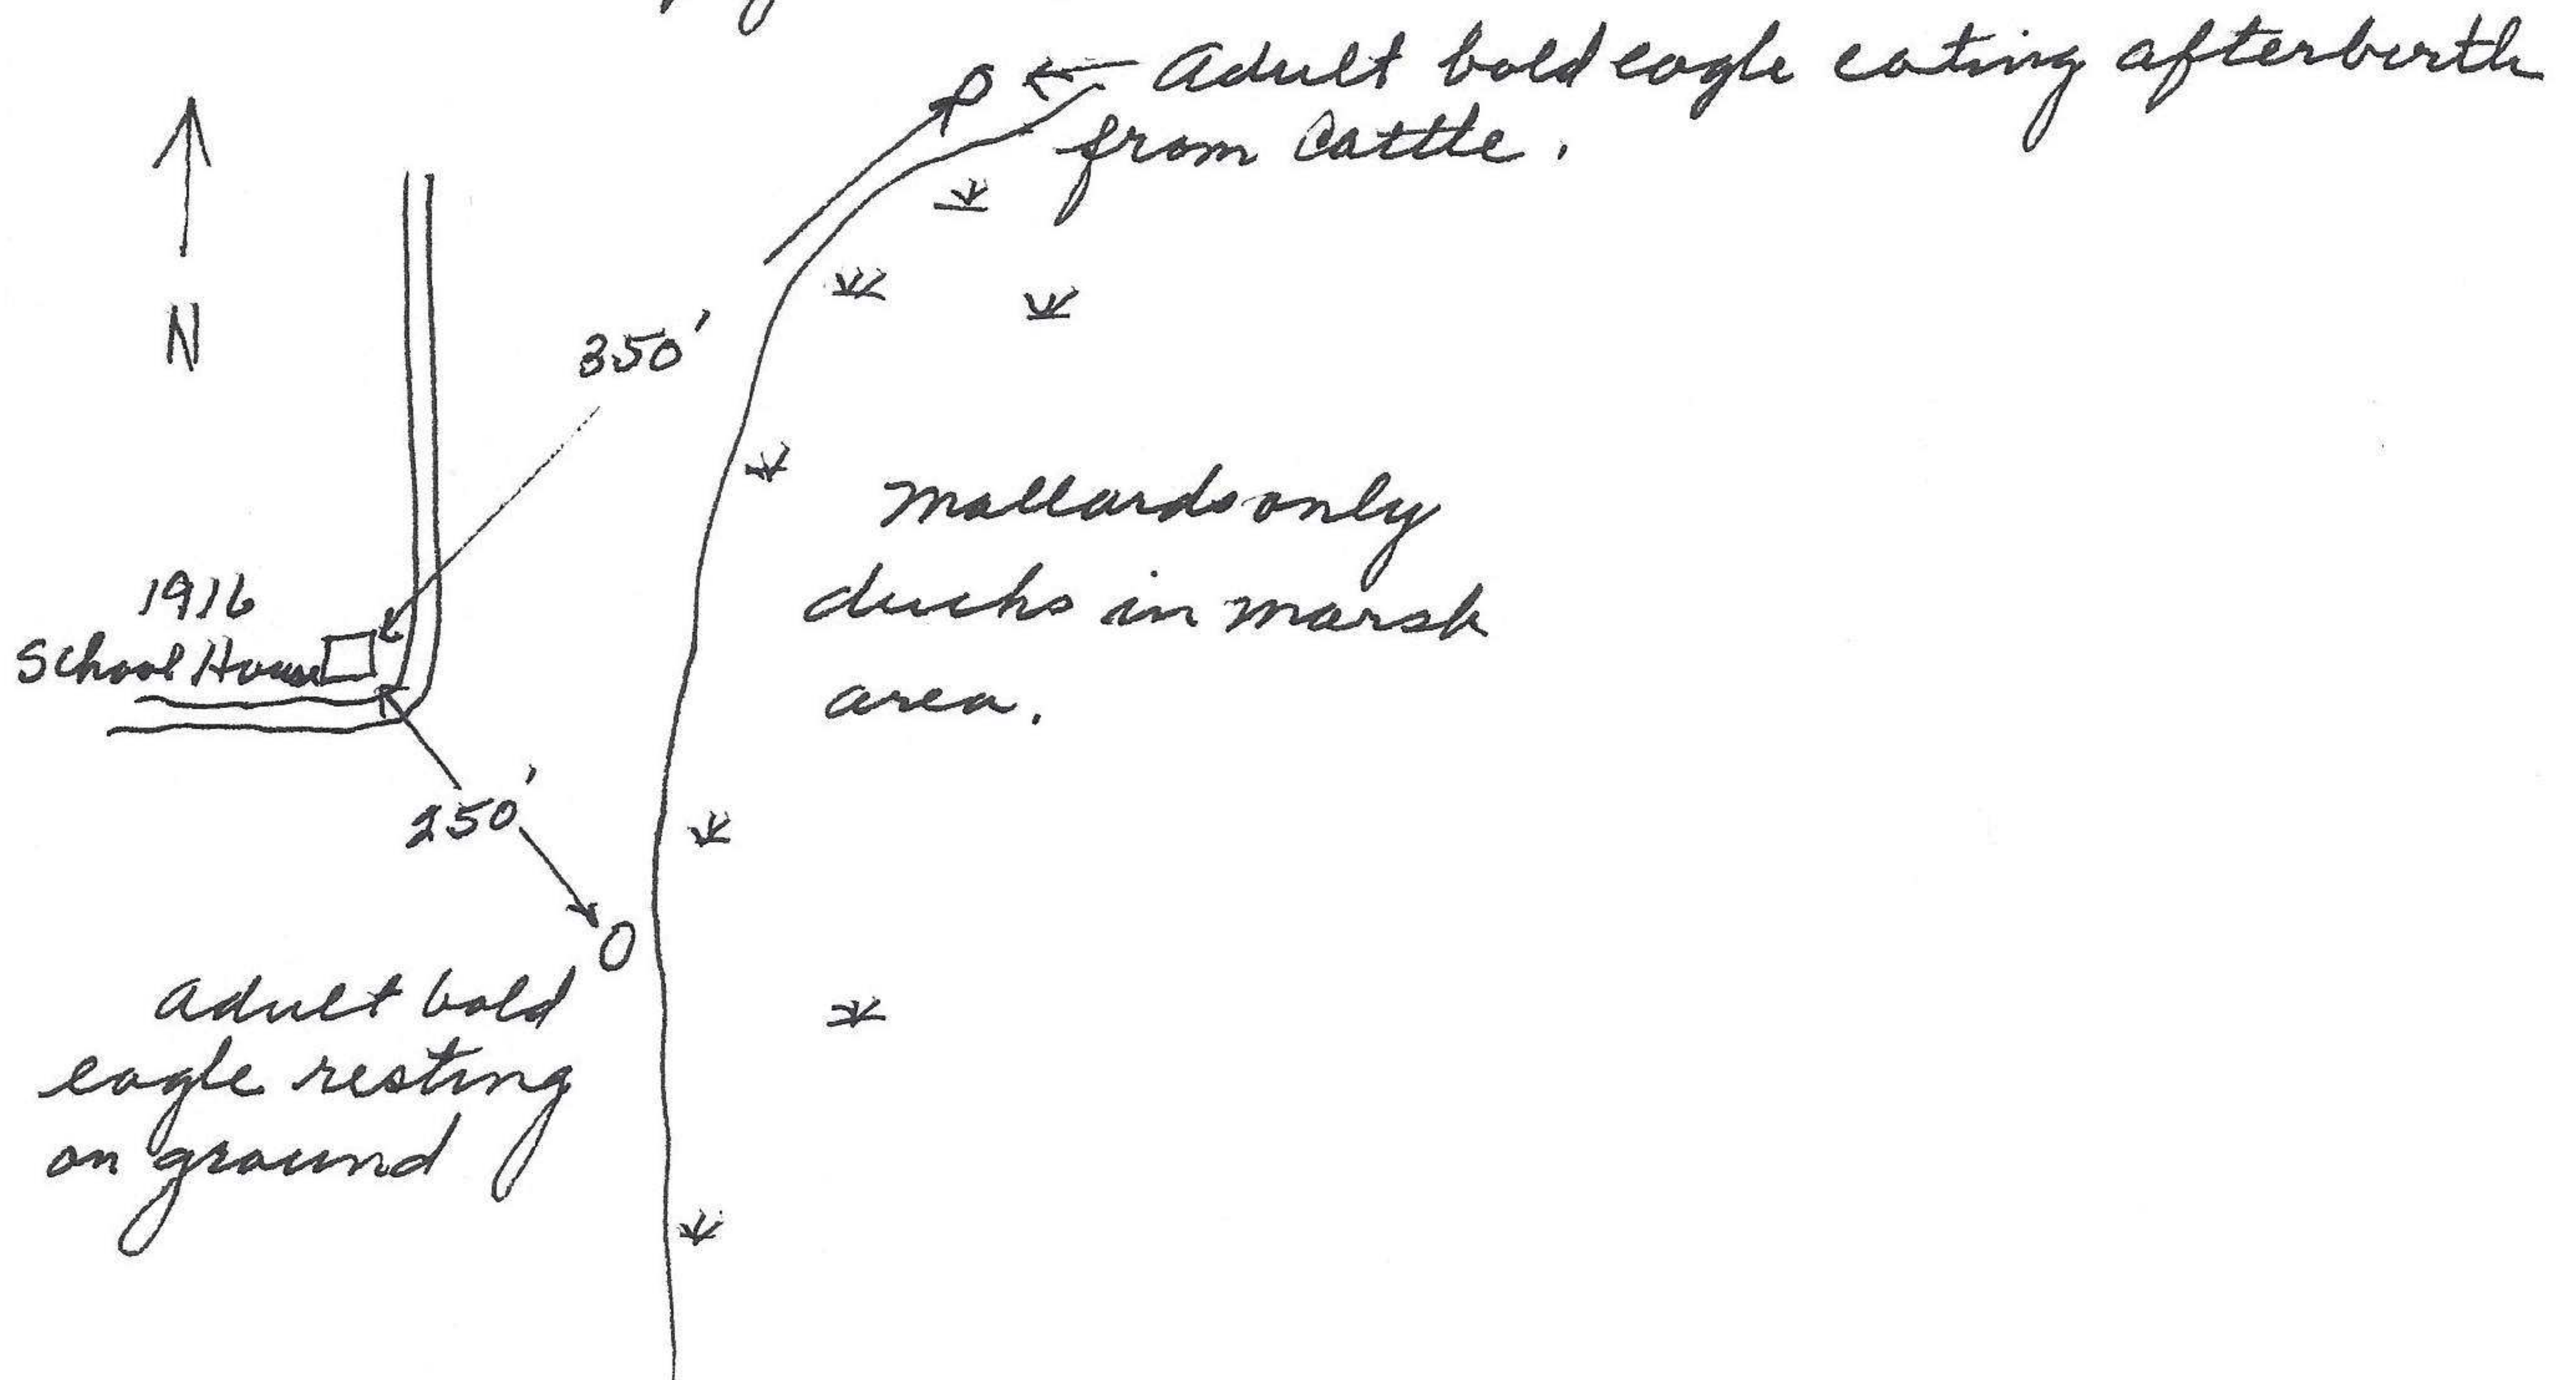 Adult bald eagle eating afterbirth
from Cattle.
N
350'
1916
School House
Mallards only
ducks in marsh
area.
250'
Adult bald
eagle resting
on ground